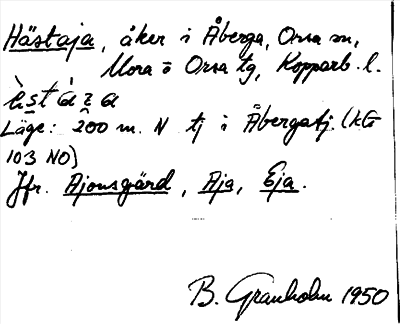 Hästaja, åker i Åberga, Orsa sn,
Mora o Orsa tg, Kopparb. l.
Läge: 200 m. N tj i Åbergatj. (kG
103 NO)
Jfr. Ajonsgård, Aja, Eja.
B. Granholm 1950